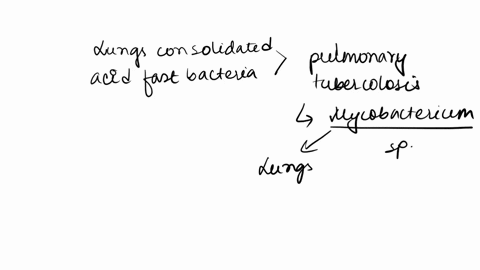 Lungs consolidated
acid fast bacteria >
pulmonary
tubercolosis
↳ Mycobacterium
sp.
Lungs